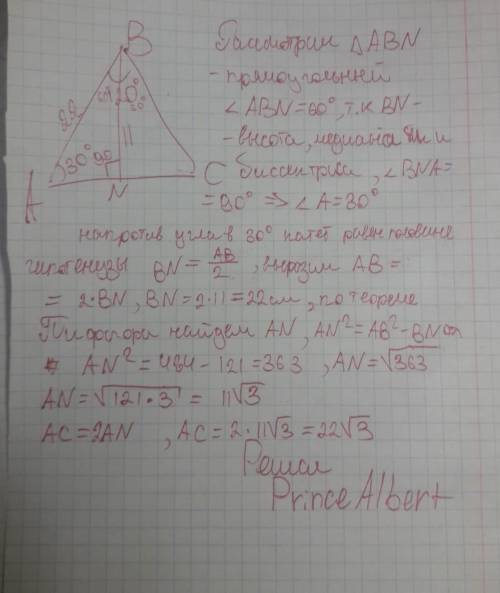 B
Рассмотрим △ABN
- прямоугольний
∠ABN=60°, т.к BN -
- высота, медиана и
биссектриса, ∠BNA=
= 90° => ∠A=30°
22
120°
11
30°
90°
A
N
C
напротив угла в 30° катет равен половине
гипотенузы BN = AB/2, выразим AB =
= 2·BN, BN=2·11=22см, по теореме
Пифагора найдем AN, AN²=AB²-BN²
AN²=484-121=363, AN=√363
AN=√121·3 = 11√3
AC=2AN, AC=2·11√3=22√3
Решал
Prince Albert